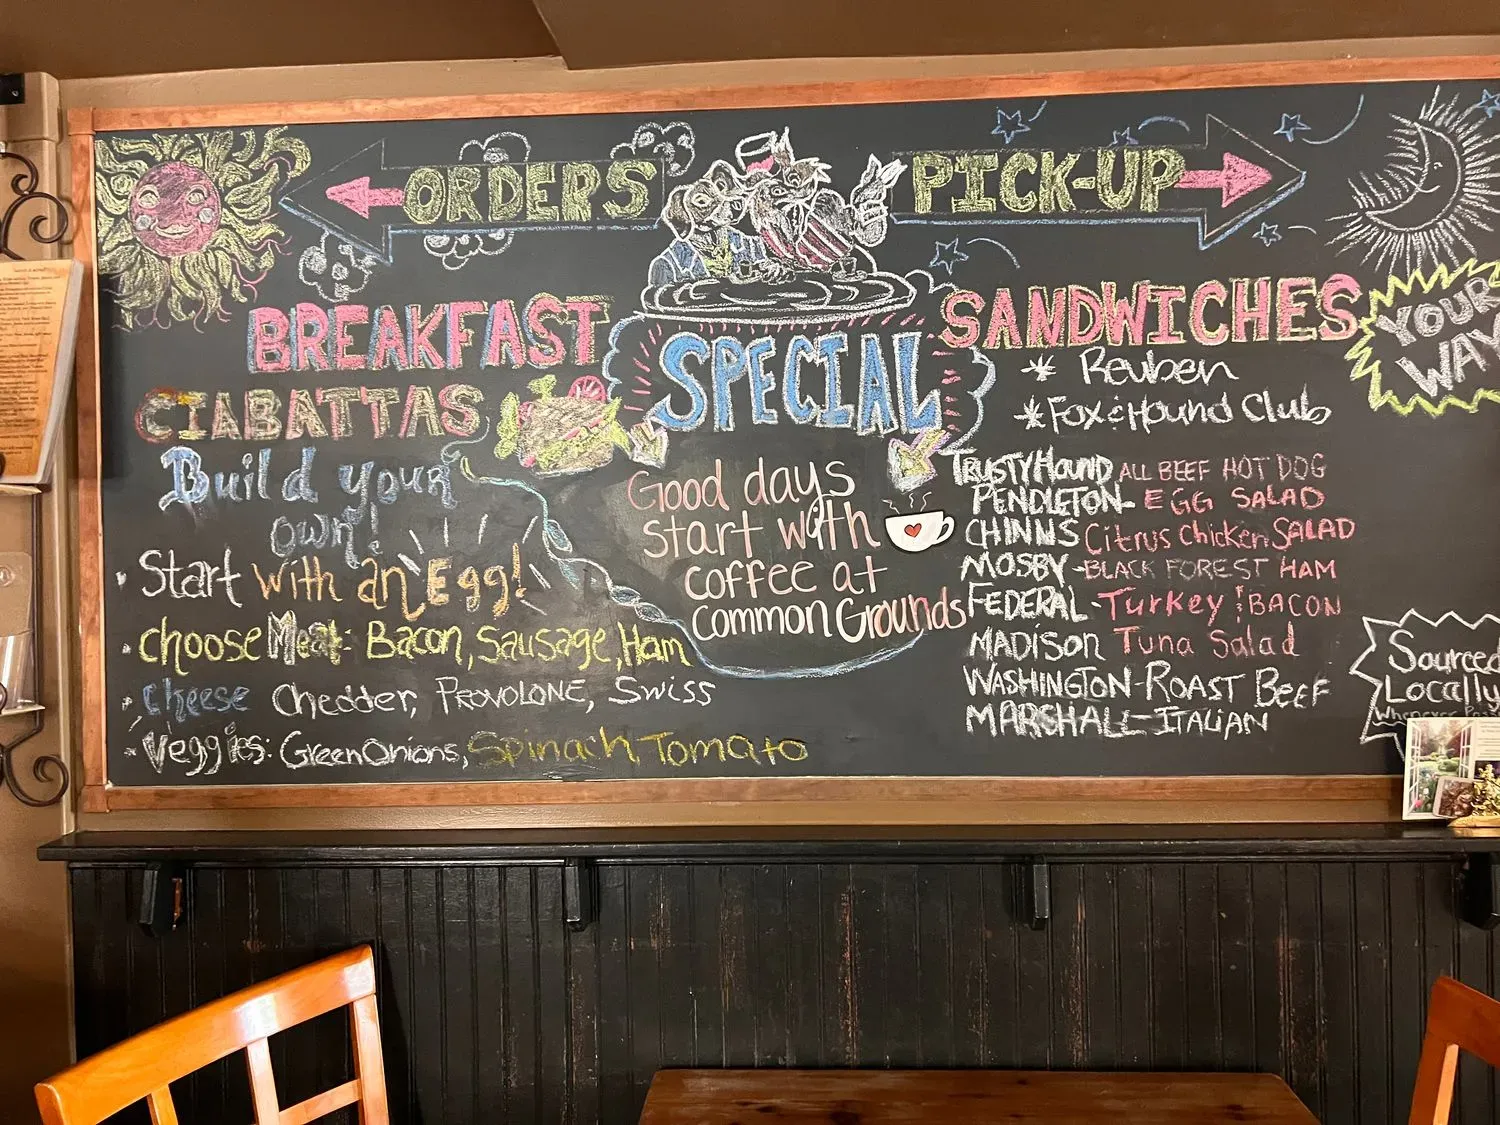 ORDERS
PICK-UP
BREAKFAST
CIABATTAS
Build your
own!
Start with an Egg!
choose Meat: Bacon, Sausage, Ham
cheese Chedder, PROVOLONE, SWiSS
Veggies: Green Onions, Spinach, Tomato
SPECIAL
Good days
start with
coffee at
Common Grounds
SANDWICHES
* Reuben
* Fox & Hound Club
TRUSTY HOUND ALL BEEF HOT DOG
PENDLETON- EGG SALAD
CHINNS Citrus Chicken SALAD
MOSBY -BLACK FOREST HAM
FEDERAL-Turkey & BACON
MADISON Tuna Salad
WASHINGTON-ROAST BEEF
MARSHALL-ITALIAN
YOUR
WAY
Sourced
Locally
Whenever